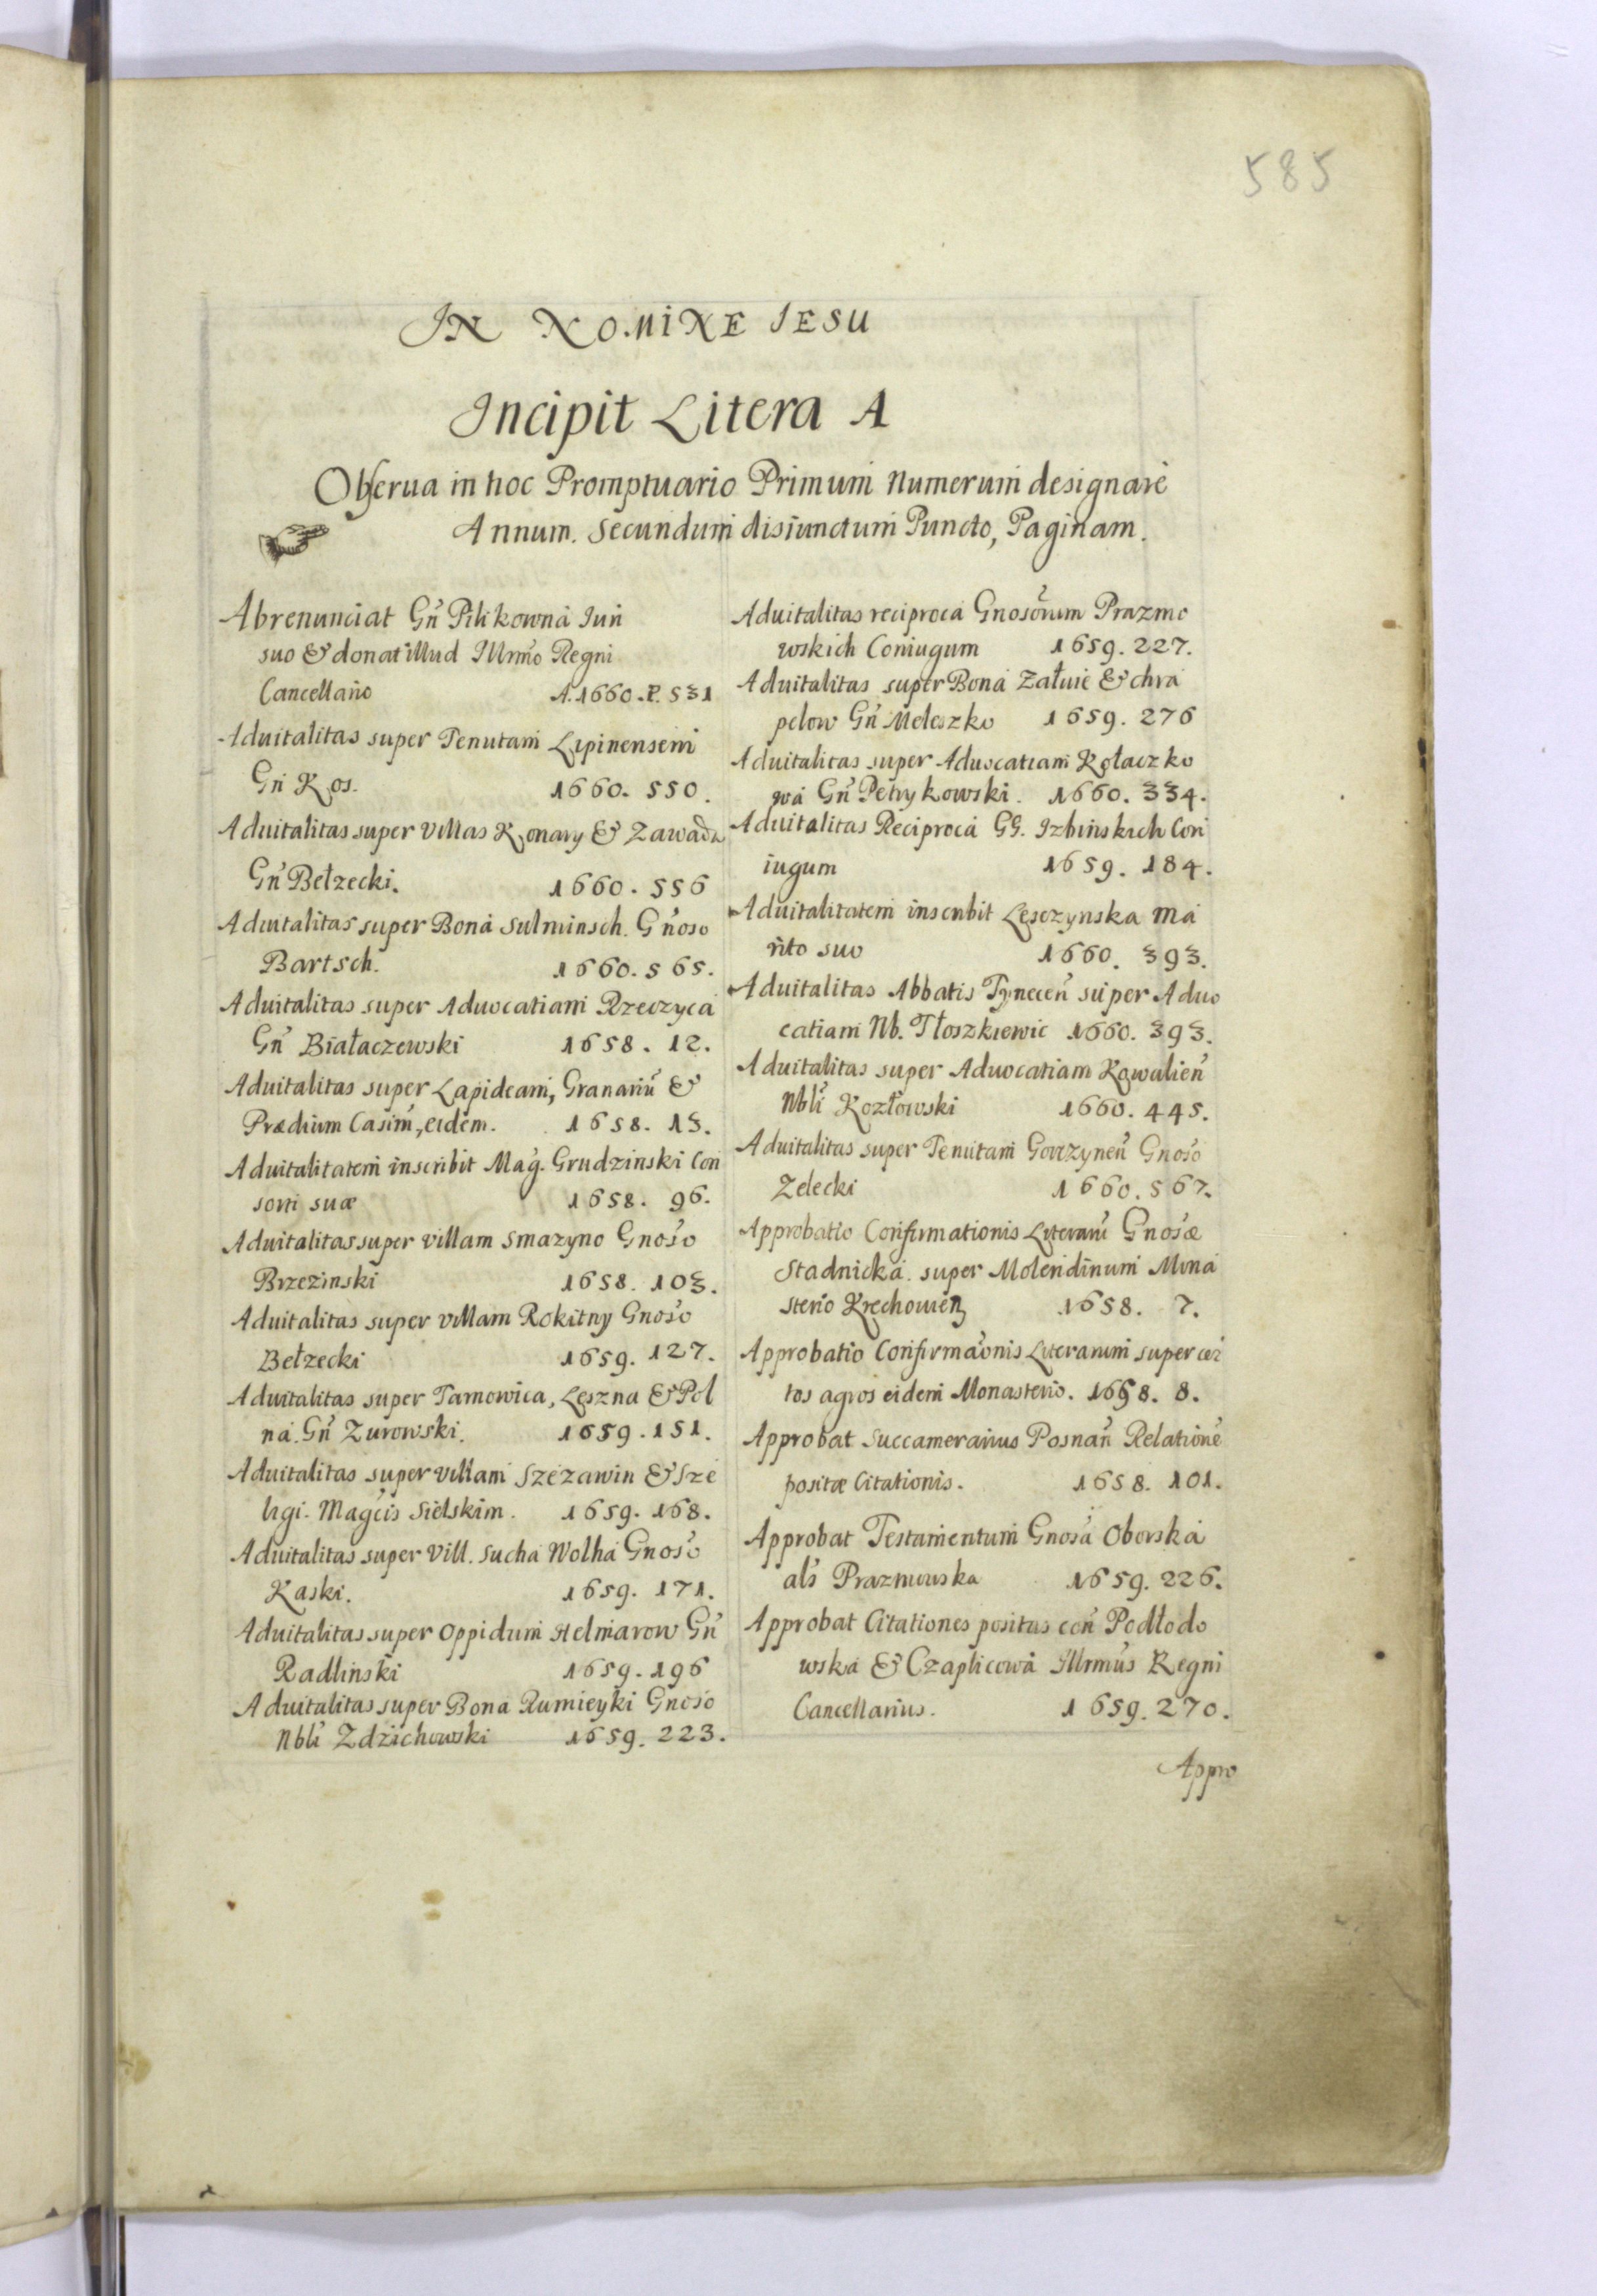 585
IN NOMINE IESU
Incipit Litera A
Obserua in hoc Promptuario Primum Numerum designare
Annum. Secundum disiunctum Puncto, Paginam.
Abrenunciat Gn̄ Pilikowna Iuri
suo & donat illud Illrmo Regni
Cancellario A. 1660. P. 531
Aduitalitas super Tenutam Lipinensem
Gn̄ Kos. 1660. 550.
Aduitalitas super villas Konary & Zawada
Gn̄ Bełzecki. 1660. 556
Aduitalitas super Bona Sulminsch. Gnoso
Bartsch. 1660. 565.
Aduitalitas super Aduocatiam Rzeczyca
Gn̄ Białaczewski 1658. 12.
Aduitalitas super Lapideam, Granariū &
Prædium Casim̄, eidem. 1658. 13.
Aduitalitatem inscribit Mag. Grudzinski Con
sorti suæ 1658. 96.
Aduitalitas super villam Smazyno Gnoso
Brzezinski 1658. 103.
Aduitalitas super villam Rokitny Gnoso
Bełzecki 1659. 127.
Aduitalitas super Tarnowica, Leszna & Pol
na. Gn̄ Zurowski. 1659. 151.
Aduitalitas super villam Szczawin & Sze
ligi. Magcis Sielskim. 1659. 168.
Aduitalitas super Vill. Sucha Wolha Gnoso
Kaski. 1659. 171.
Aduitalitas super Oppidum Helmarow Gn̄
Radlinski 1659. 196
Aduitalitas super Bona Rumieyki Gnoso
Nbli Zdzichowski 1659. 223.
Aduitalitas reciproca Gnosorum Prazmo
wskich Coniugum 1659. 227.
Aduitalitas super Bona Załuie & Chra
pelow Gn̄ Meleszko 1659. 276
Aduitalitas super Aduocatiam Kołaczko
wa Gn̄ Petrykowski. 1660. 334.
Aduitalitas Reciproca GG. Izbinskich Con
iugum 1659. 184.
Aduitalitatem inscribit Lesczynska Ma
rito suo 1660. 393.
Aduitalitas Abbatis Tynecen̄ super Aduo
catiam Nb. Tłoszkiewic 1660. 393.
Aduitalitas super Aduocatiam Kowalien̄
Nbli Kozłowski 1660. 445.
Aduitalitas super Tenutam Gorzynen̄ Gnoso
Zelecki 1660. 567.
Approbatio Confirmationis Literarū Gnosæ
Stadnicka super Molendinum Mona
sterio Krechowien 1658. 7.
Approbatio Confirmaōnis Literarum super cer
tos agros eidem Monasterio. 1658. 8.
Approbat Succamerarius Posnan̄ Relationē
positæ Citationis. 1658. 101.
Approbat Testamentum Gnosa Oborska
als Prazmowska 1659. 226.
Approbat Citationes positas con̄ Podłodo
wska & Czaplicowa Illrmus Regni
Cancellarius. 1659. 270.
Appro